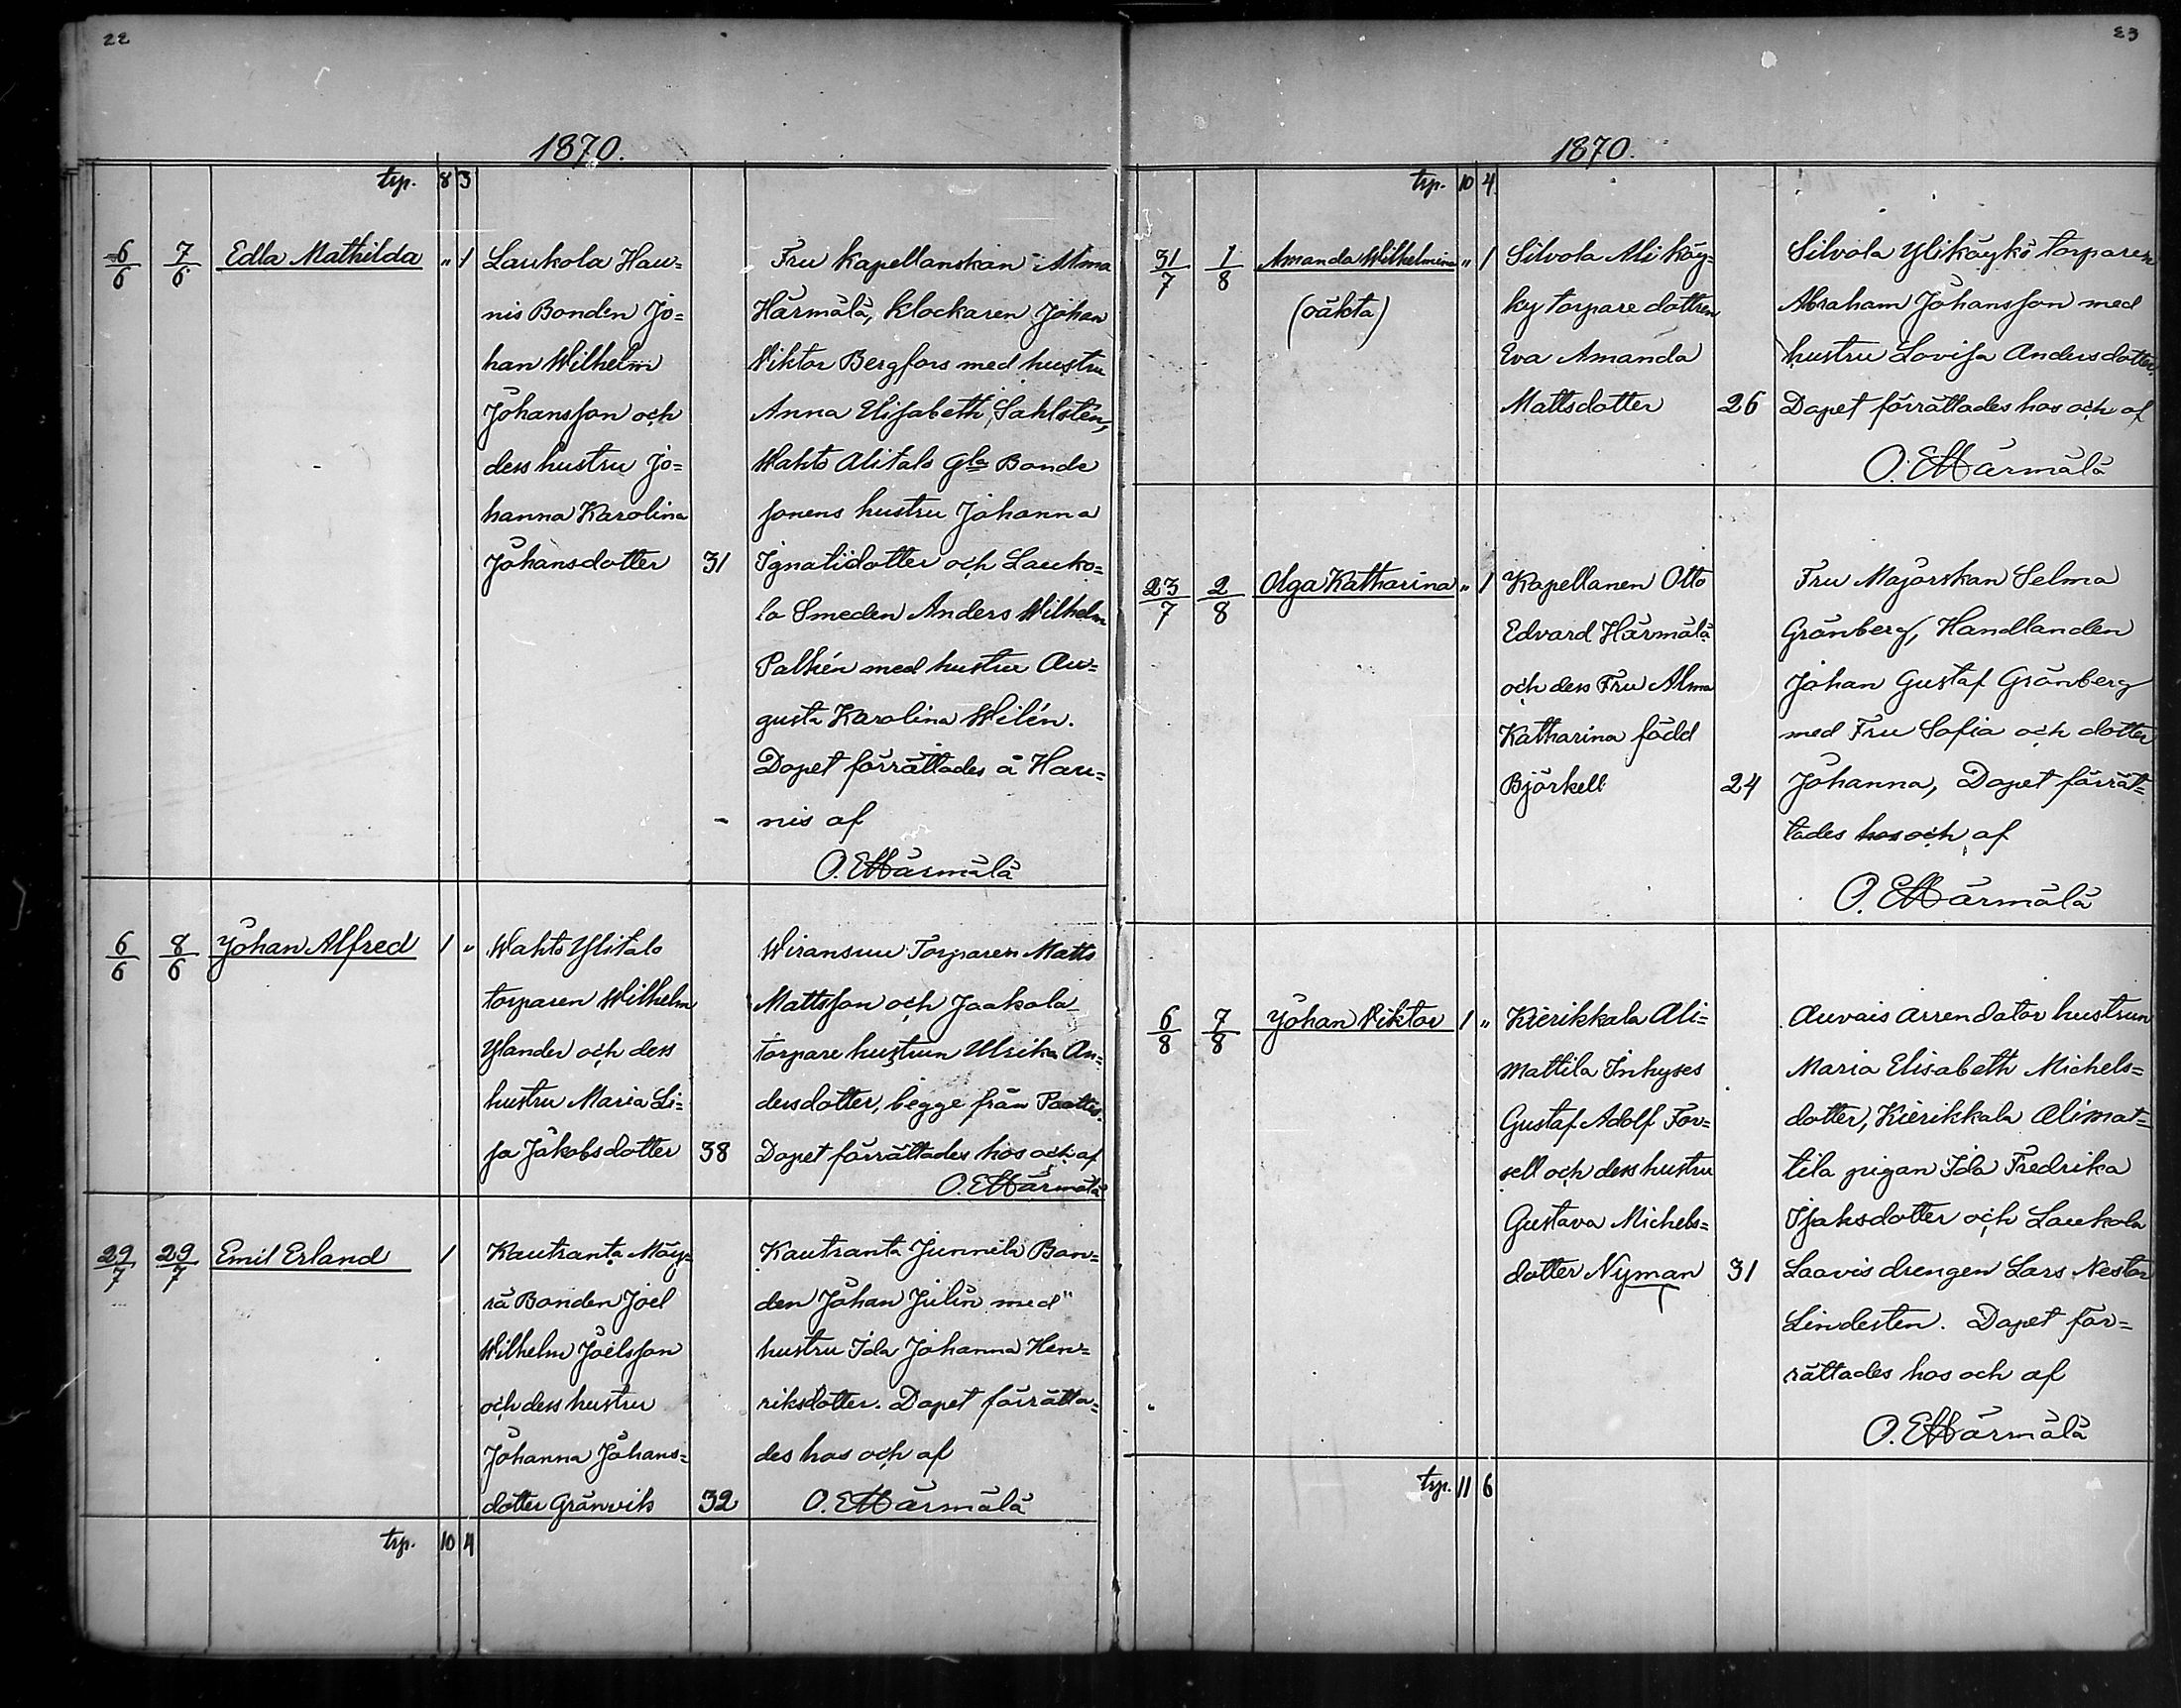 22
1870.
trp. 8 3
6/6 7/6 Edla Mathilda " 1
Laukola Hau=
nis Bonden Jo=
han Wilhelm
Johansson och
dess hustru Jo=
hanna Karolina
Johansdotter 31
Fru Kapellanskan Alma
Härmälä, Klockaren Johan
Viktor Bergfors med hustru
Anna Elisabeth Sahlstén,
Wahto Alitalo Gla Bonde
sonens hustru Johanna
Ignatidotter och Lauko=
la Smeden Anders Wilhelm
Palhén med hustru Au=
gusta Karolina Welén.
Dopet förrättades å Hau=
nis af
O. E Härmälä
6/6 8/6 Johan Alfred 1 "
Wahto Ylitalo
torparen Wilhelm
Ylander och dess
hustru Maria Li=
sa Jakobsdotter 38
Wiransuu Torparen Matts
Mattsson och Jaakola
torpare hustrun Ulrika An=
dersdotter, begge från Paattis.
Dopet förrättades hos och af
O. E Härmälä
29/7 29/7 Emil Erland 1
Kautranta Möy=
rä Bonden Joel
Wilhelm Joelsson
och dess hustru
Johanna Johans=
dotter Grönvik 32
Kautranta Junnila Bon=
den Johan Julin med
hustru Ida Johanna Hen=
riksdotter. Dopet förrätta=
des hos och af
O. E Härmälä
trp. 10 4
23
1870.
trp. 10 4
31/7 1/8 Amanda Wilhelmina " 1
(oäkta)
Silvola Ali Käy=
ky torpare dottren
Eva Amanda
Mattsdotter 26
Silvola Ylikäykö torparen
Abraham Johansson med
hustru Lovisa Andersdotter.
Dopet förrättades hos och af
O. E Härmälä
23/7 2/8 Olga Katharina " 1
Kapellanen Otto
Edvard Härmälä
och dess Fru Alma
Katharina född
Björkell 24
Fru Majorskan Selma
Grönberg, Handlanden
Johan Gustaf Grönberg
med Fru Sofia och dotter
Johanna, Dopet förrät=
tades hos och af
O. E Härmälä
6/8 7/8 Johan Viktor 1 "
Kierikkala Ali=
mattila Inhyses
Gustaf Adolf For=
sell och dess hustru
Gustava Michels=
dotter Nyman 31
Auvais arrendator hustrun
Maria Elisabeth Michels=
dotter, Kierikkala Alimat=
tila pigan Ida Fredrika
Isaksdotter och Laukola
Laavis drengen Lars Nestor
Lindesten. Dopet för=
rättades hos och af
O. E Härmälä
trp. 11 6